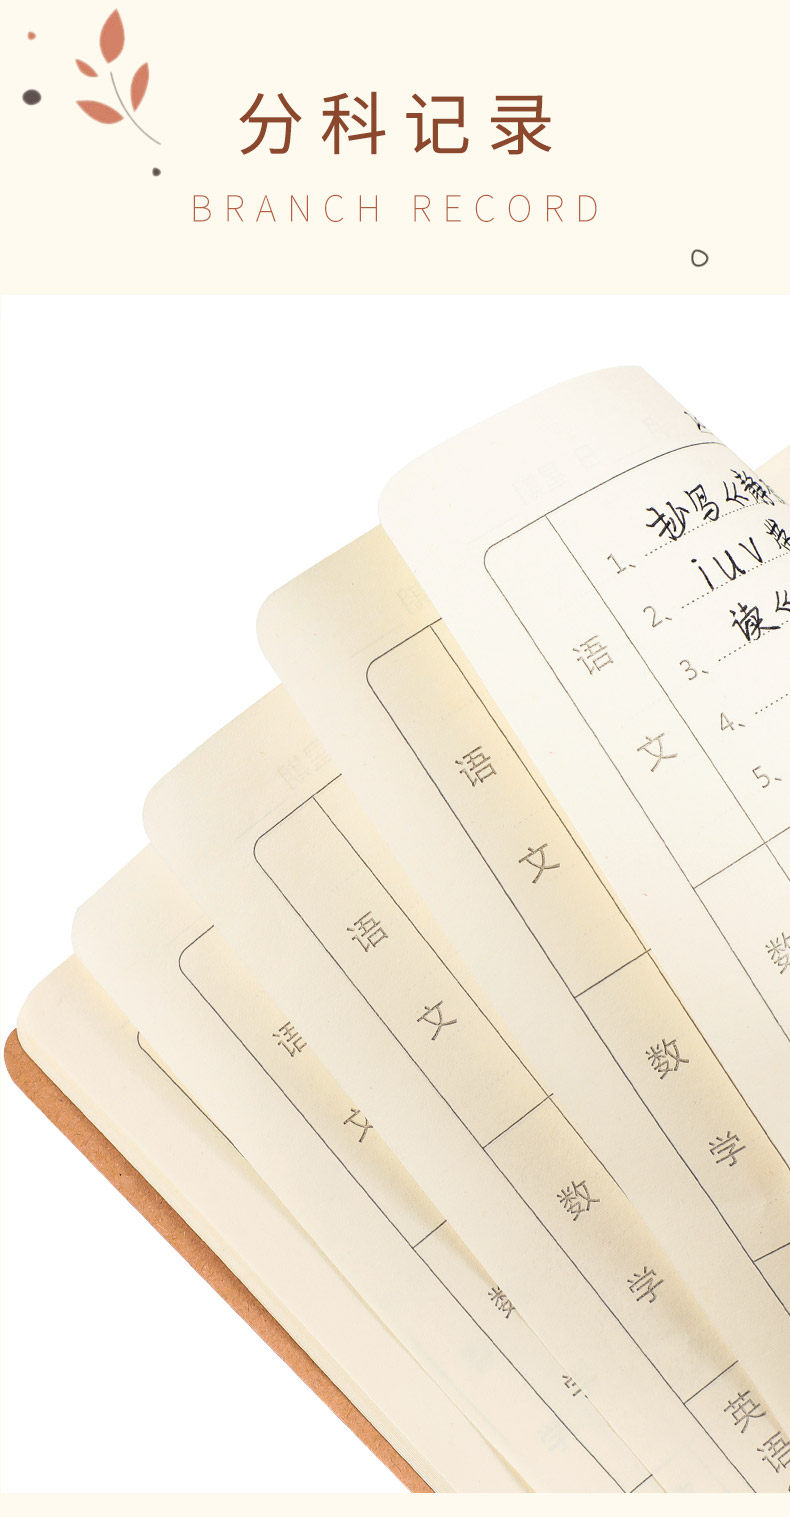 分科记录
BRANCH RECORD
语文
1、抄写《静
2、iuv
3、读《
4、
5、
数
语文
数学
语文
数学
英语
语文
数